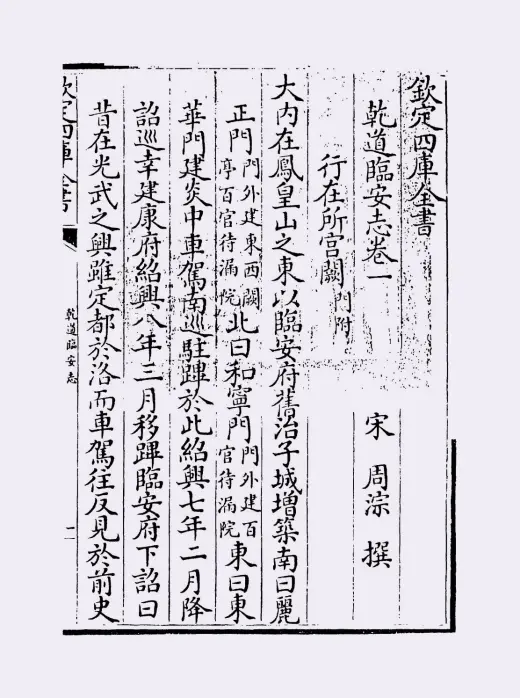 欽定四庫全書
乾道臨安志卷一
宋 周淙 撰
行在所宫闕門附
大内在鳳皇山之東以臨安府舊治子城増築南曰麗
正門門外建東西闕亭百官待漏院北曰和寧門門外建百官待漏院東曰東
華門建炎中車駕南巡駐蹕於此紹興七年二月降
詔巡幸建康府紹興八年三月移蹕臨安府下詔曰
昔在光武之興雖定都於洛而車駕往反見於前史
欽定四庫全書
乾道臨安志